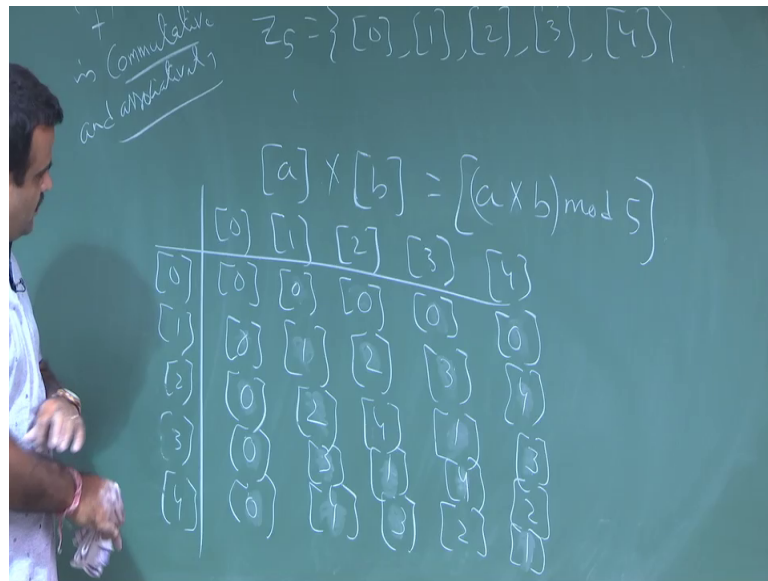 '+'
is Commutative
and associative,
Z5 = { [0], [1], [2], [3], [4] }
[a] X [b] = [(a X b) mod 5]
[0] [1] [2] [3] [4]
[0] [0] [0] [0] [0] [0]
[1] [0] [1] [2] [3] [4]
[2] [0] [2] [4] [1] [3]
[3] [0] [3] [1] [4] [2]
[4] [0] [4] [3] [2] [1]